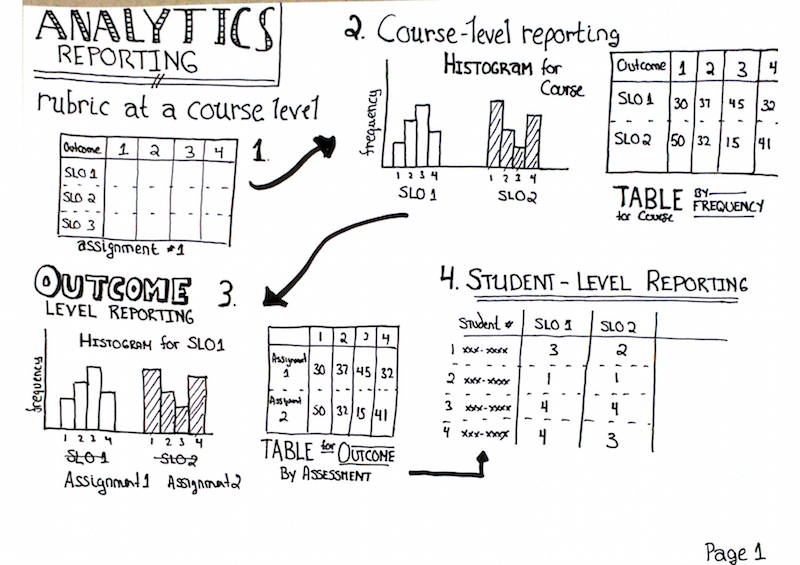 ANALYTICS
REPORTING
rubric at a course level
1.
Outcome 1 2 3 4
SLO 1
SLO 2
SLO 3
assignment #1
2. Course-level reporting
HISTOGRAM for
Course
frequency
1 2 3 4
SLO 1
1 2 3 4
SLO2
Outcome 1 2 3 4
SLO 1 30 37 45 32
SLO 2 50 32 15 41
TABLE BY FREQUENCY
for Course
OUTCOME 3.
LEVEL REPORTING
HISTOGRAM for SLO1
frequency
1 2 3 4
SLO 1
Assignment 1
1 2 3 4
SLO 2
Assignment 2
1 2 3 4
Assignment 1 30 37 45 32
Assignment 2 50 32 15 41
TABLE for OUTCOME
BY ASSESSMENT
4. STUDENT-LEVEL REPORTING
Student # SLO 1 SLO 2
1 xxx-xxxx 3 2
2 xxx-xxxx 1 1
3 xxx-xxxx 4 4
4 xxx-xxxx 4 3
Page 1